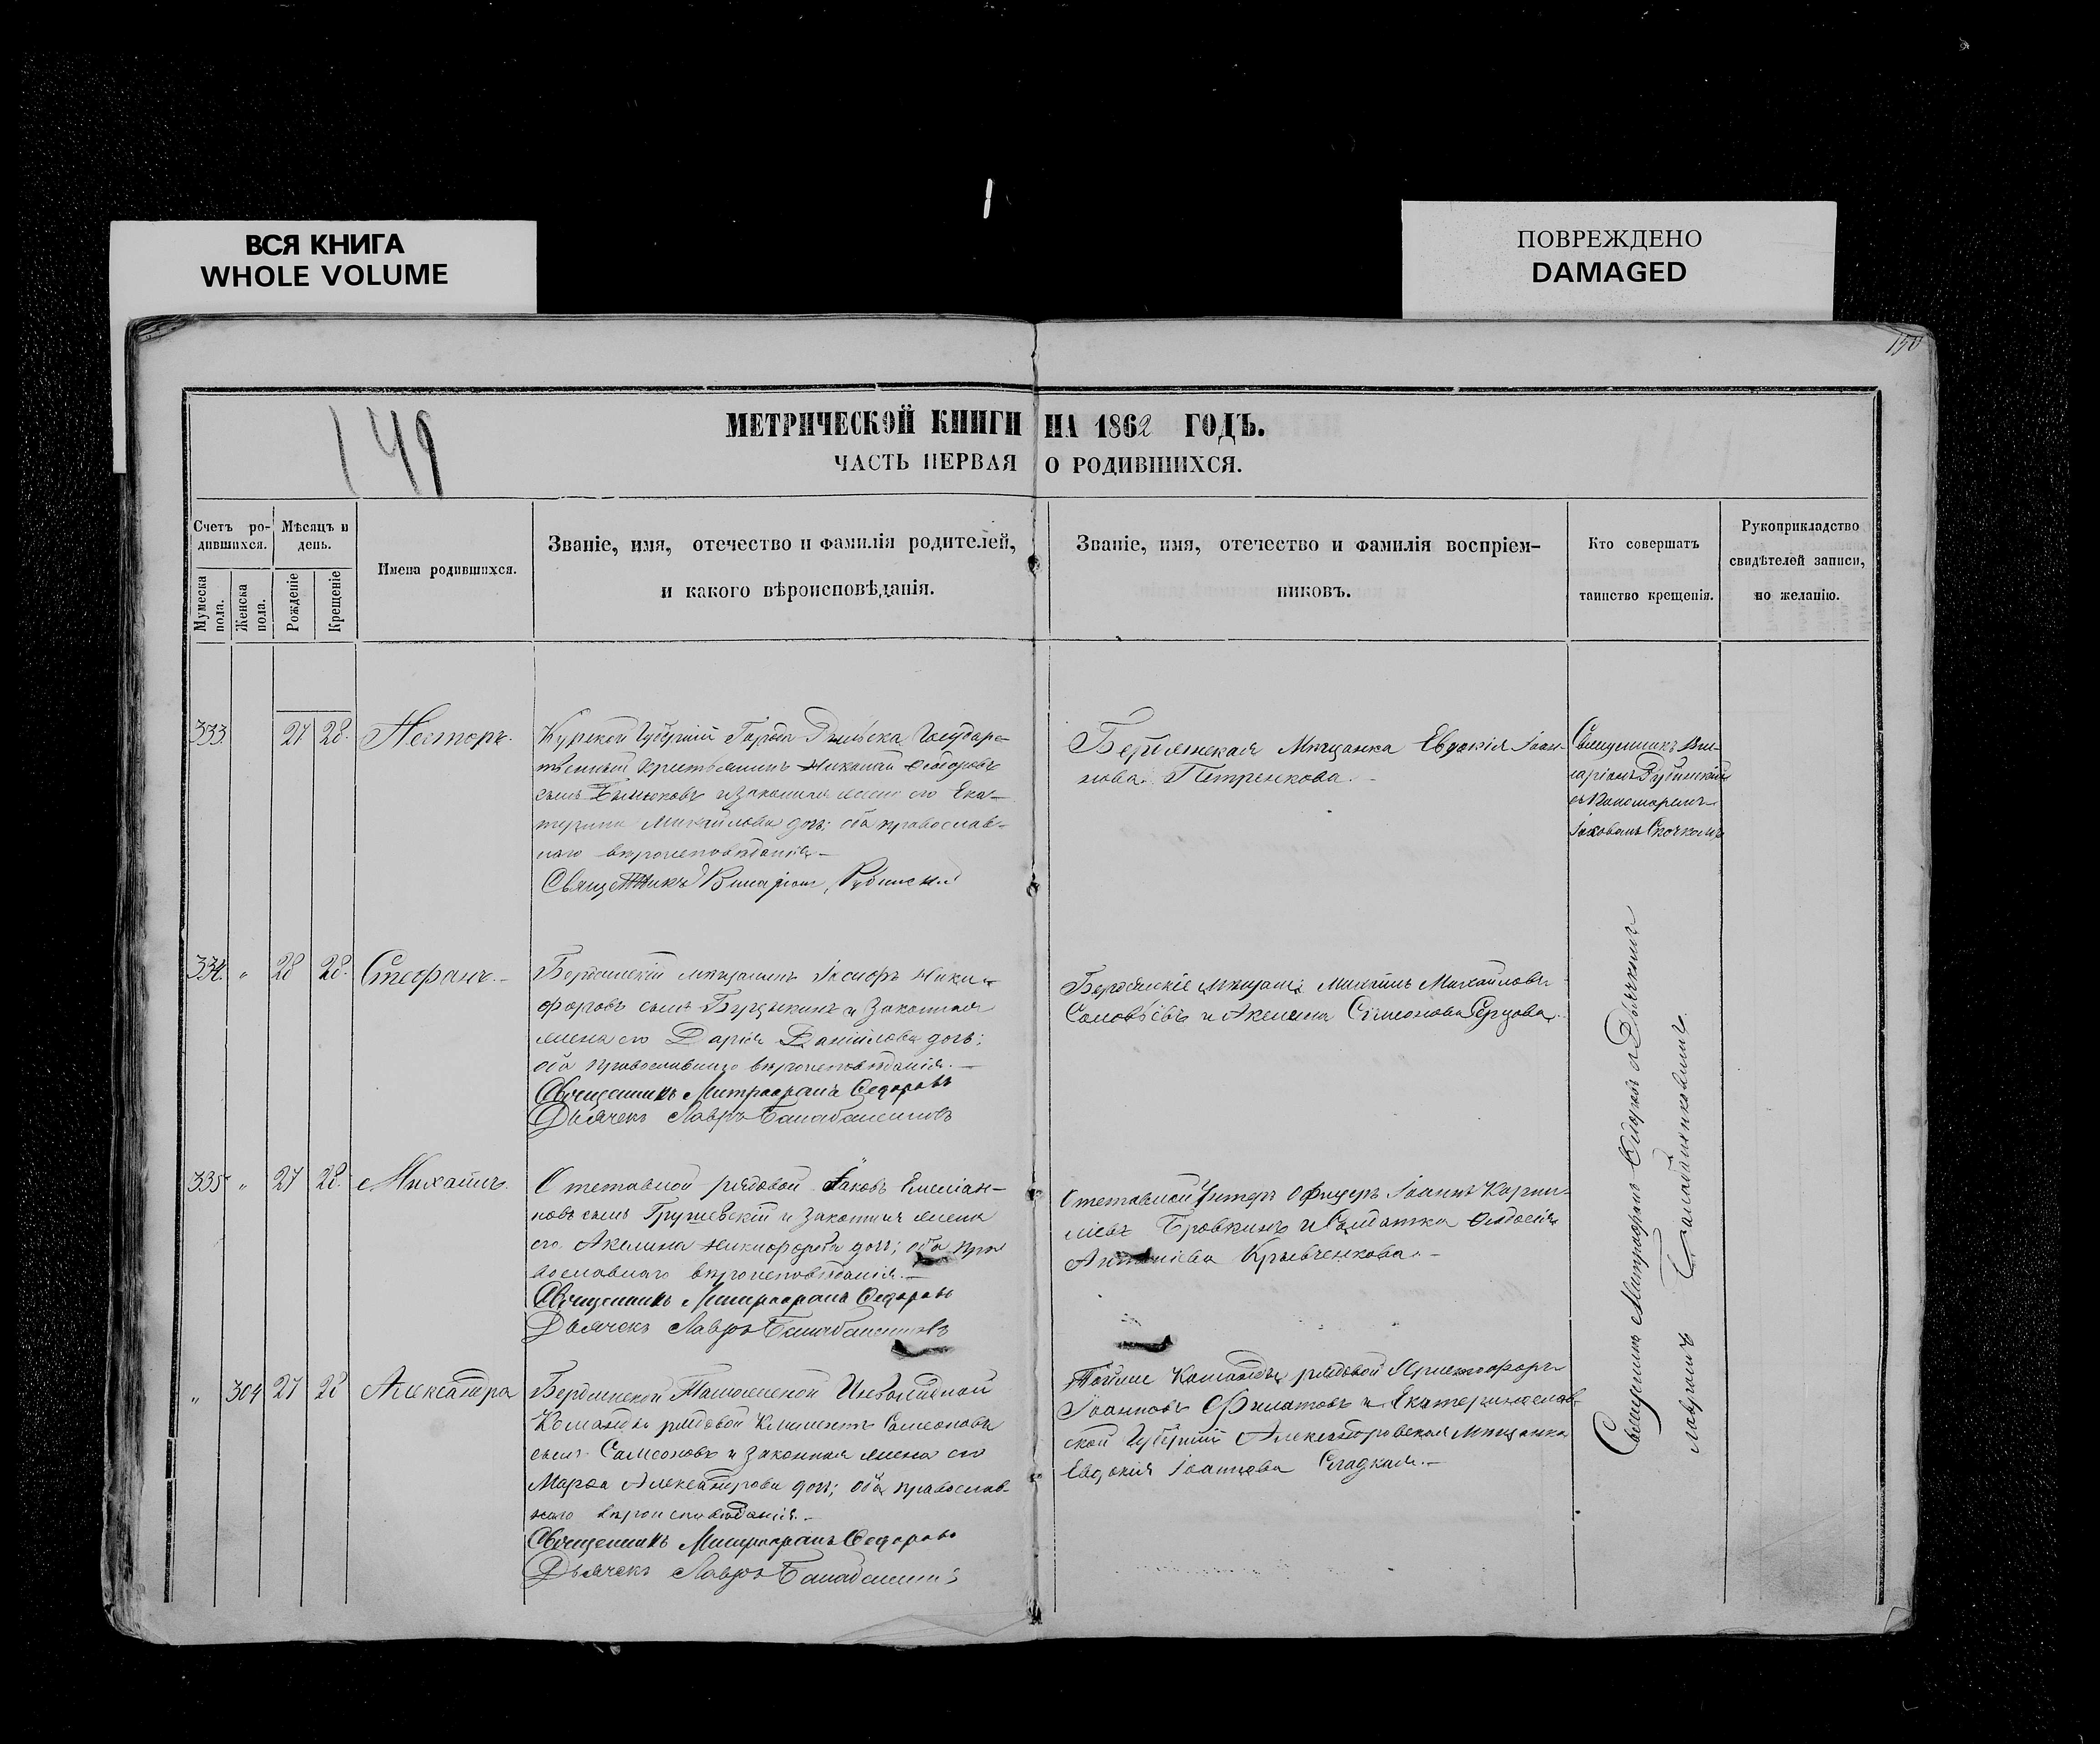 ВСЯ КНИГА
WHOLE VOLUME
ПОВРЕЖДЕНО
DAMAGED
150
149
МЕТРИЧЕСКОЙ КНИГИ НА 1862 ГОДЪ.
ЧАСТЬ ПЕРВАЯ О РОДИВШИХСЯ.
Счетъ ро-
дившихся.
Мужеска
пола.
Женска
пола.
Мѣсяцъ и
день.
Рожденіе
Крещеніе
Имена родившихся.
Званіе, имя, отечество и фамилія родителей,
и какого вѣроисповѣданія.
Званіе, имя, отечество и фамилія воспріем-
никовъ.
Кто совершатъ
таинство крещенія.
Рукоприкладство
свидѣтелей записи,
по желанію.
333. 27 28. Несторъ.
Курской Губерніи Города Рыльска Государс-
твенный крестьянинъ Николай Ѳедоровъ
сынъ и законная жена его Ека-
терина Михайлова дочь; оба православ-
наго вѣроисповѣданія.
Священникъ Виларіонъ Рубинскій
Бердянская Мѣщанка Евдокія Іоан-
нова Петренкова.
Священникъ Ви-
ларіонъ Рубинскій
съ Пономаремъ
Іаковомъ
334. „ 28 28. Стефанъ.
Бердянскій мѣщанинъ Ники-
форовъ сынъ и законная
жена его Дарія Даніилова дочь;
оба православнаго вѣроисповѣданія.
Священникъ Митрофанъ Ѳедоровъ
Дьячекъ Лавръ
Бердянскіе мѣщане Михаилъ Михайловъ
Соловьевъ и Акелина Сімеонова
335 „ 27 28. Михаилъ.
Отставной рядовой Іаковъ Емеліан-
новъ сынъ Грушевскій и законная жена
его Акелина Никифорова дочь; оба пра
вославнаго вѣроисповѣданія.
Священникъ Митрофанъ Ѳедоровъ
Дьячекъ Лавръ
Отставной Унтеръ Офицеръ Іоаннъ Корни-
ліевъ Бровкинъ и Солдатка Ѳеодосія
Антоніева Крывченкова.
„ 304 27 28 Александра
Бердянской Инвалидной
Команды рядовой Климентъ Самсоновъ
сынъ Самсоновъ и законная жена его
Марѳа Александрова дочь; оба православ-
наго вѣроисповѣданія.
Священникъ Митрофанъ Ѳедоровъ
Дьячекъ Лавръ
Тойже Команды рядовой Христофоръ
Іоанновъ Филатовъ и Екатеринослав-
ской Губерніи Александровская Мѣщанка
Евдокія Іоаннова Сладкая.
Священникъ Митрофанъ Ѳедоровъ и Дьячекъ